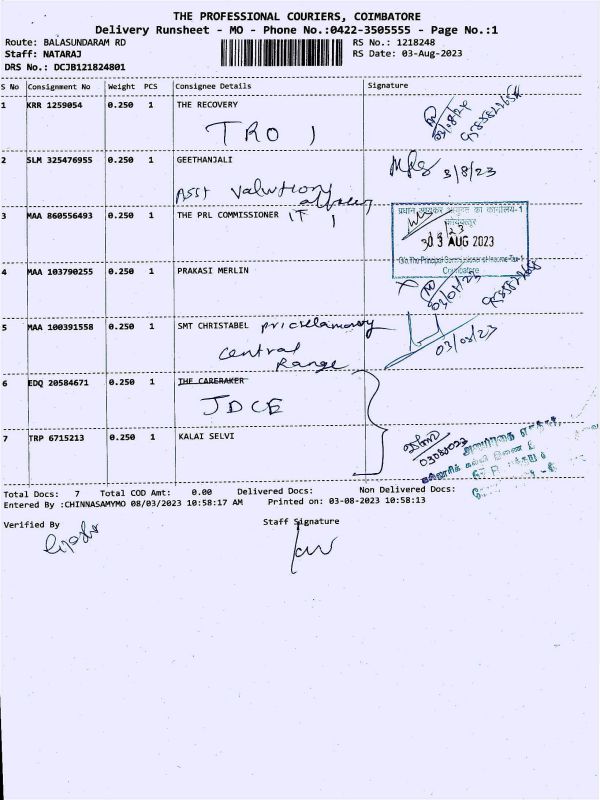 THE PROFESSIONAL COURIERS, COIMBATORE
Delivery Runsheet - MO - Phone No.:0422-3505555 - Page No.:1
Route: BALASUNDARAM RD
RS No.: 1218248
Staff: NATARAJ
RS Date: 03-Aug-2023
DRS No.: DCJB121824801
S No Consignment No Weight PCS Consignee Details Signature
1 KRR 1259054 0.250 1 THE RECOVERY
TRO 1
2 SLM 325476955 0.250 1 GEETHANJALI
Asst Valuation officer
3/8/23
3 MAA 860556493 0.250 1 THE PRL COMMISSIONER IT 1
03 AUG 2023
O/o.The Principal Commissioner of Income-Tax-1
Coimbatore
4 MAA 103790255 0.250 1 PRAKASI MERLIN
5 MAA 100391558 0.250 1 SMT CHRISTABEL
central
Range
03/08/23
6 EDQ 20584671 0.250 1 THE CARERAKER
JDCE
7 TRP 6715213 0.250 1 KALAI SELVI
Total Docs: 7 Total COD Amt: 0.00 Delivered Docs: Non Delivered Docs:
Entered By :CHINNASAMYMO 08/03/2023 10:58:17 AM Printed on: 03-08-2023 10:58:13
Verified By
Staff Signature